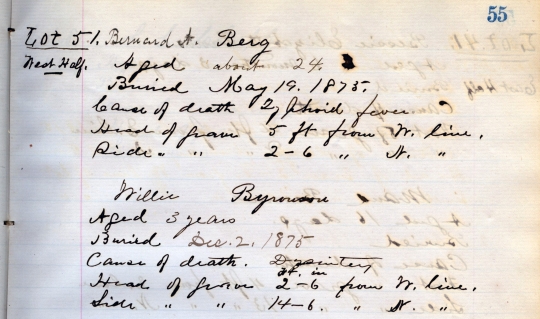 55
Lot 51. Bernard A. Berg
West Half. Aged about 24.
Buried May 19. 1875.
Cause of death Typhoid fever
Head of grave 5 ft from W. line.
Side " " 2-6 " N. "
Willie
Aged 3 years
Buried Dec. 2. 1875
Cause of death. Dysintery
ft. in
Head of grave 2-6 from W. line.
Side " " 14-6. " N. "